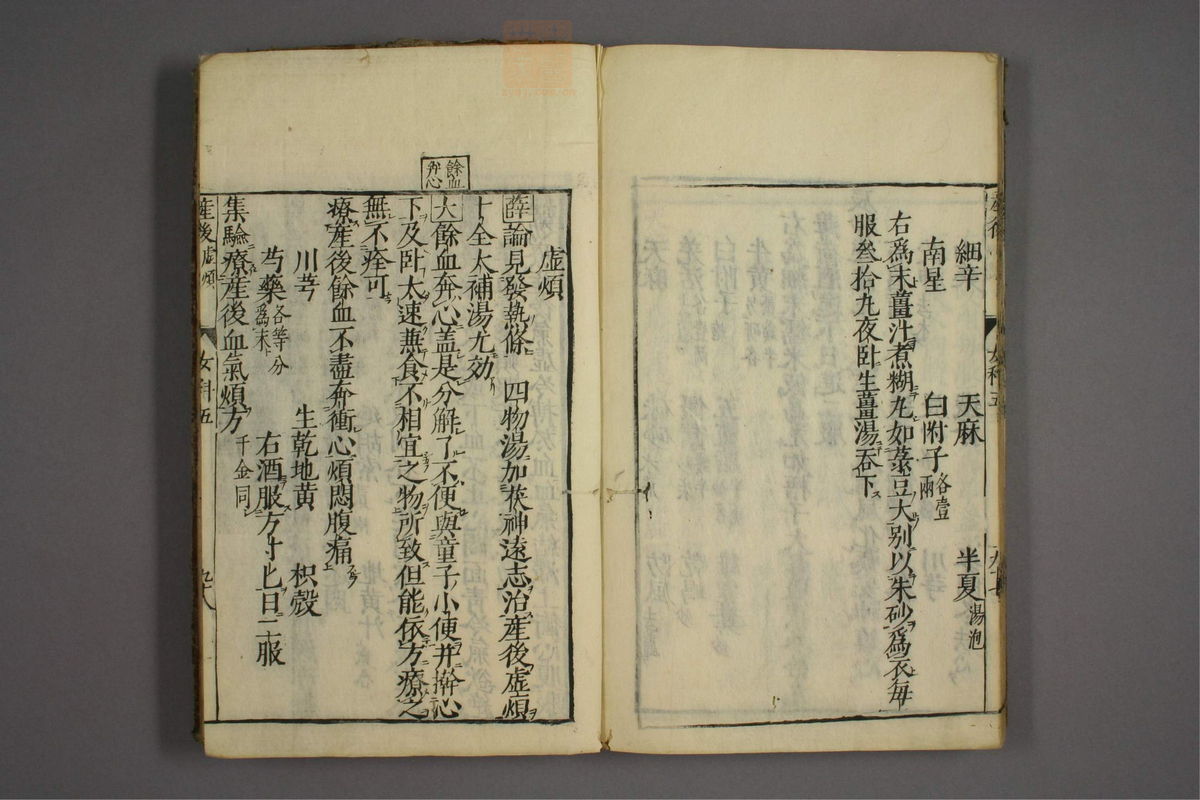 細辛 天麻 半夏湯泡
南星 白附子各壹兩
右爲末薑汁煮糊丸如菉豆大別以朱砂爲衣每
服叄拾丸夜卧生薑湯吞下
虛煩
薛論見發熱條 四物湯加茯神遠志治産後虛煩
十全大補湯尤効
餘血奔心
大餘血奔心盖是分解了不便與童子小便并擀心
下及卧太速燕食不相宜之物所致但能依方療之
無不痊可
療産後餘血不盡奔衝心煩悶腹痛
川芎 生乾地黄 枳殼
芍藥各等分爲末 右酒服方寸匕日二服
集驗療産後血氣煩方千金同
産後虛煩 女科五 九十八